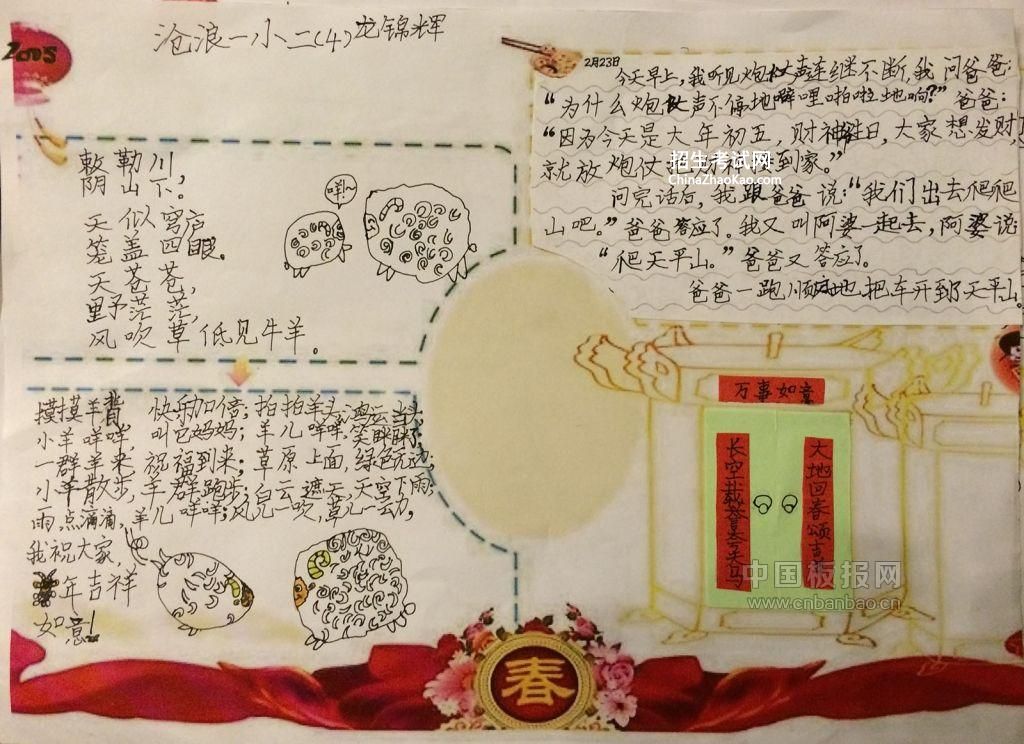 2005
沧浪一小二(4)龙锦辉
敕勒川
阴山下,
天似穹庐
笼盖四
天苍苍,
野茫茫,
风吹草低见牛羊。
咩!~
摸摸羊背 快乐加倍;拍拍羊头,
小羊咩咩,叫它妈妈;羊儿咩咩,笑
一群羊来,祝福到来;草原上面,绿色无边,
小羊散步,羊群跑步;白云遮天,天空下雨,
雨点滴滴,羊儿咩咩;风儿一吹,草儿一动,
我祝大家,
年吉祥
如意!
2月23日
今天早上,我听见炮仗声连继不断,我问爸爸:
“为什么炮仗声不停地噼哩啪啦地响?”爸爸:
“因为今天是大年初五,财神生日,大家想发财,
就放炮仗把财神 到家。”
问完话后,我跟爸爸说:“我们出去爬爬
山吧。”爸爸答应了。我又叫阿婆一起去,阿婆说:
“爬天平山。”爸爸又答应了。
爸爸一跑顺 地把车开到了天平山。
招生考试网
ChinaZhaoKao.com
万事如意
长空载誉 天马
大地回春颂吉
中国板报网
www.cnbanbao.cn
春